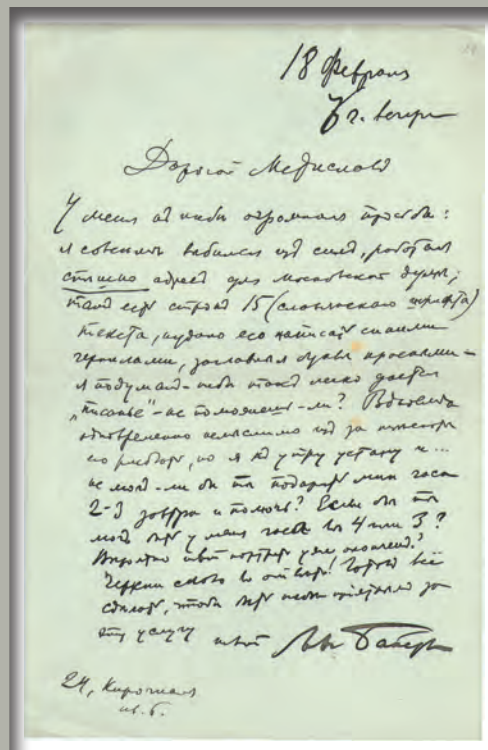 18 Февраля
7 ч. вечера
Дорогой Мстиславъ
У меня къ тебѣ огромная просьба:
я совсѣмъ выбился изъ силъ, работая
спѣшно адресъ для Московской думы;
тамъ есть строкъ 15 (славянскаго шрифта)
текста, нужно его написать синими
чернилами, заглавныя буквы красными –
я подумалъ – тебѣ такъ легко дается
„писанье“ – не поможешь – ли? Вдвоемъ
одновременно немыслимо изъ за
но я къ утру устану и...
не могъ – ли бы ты подарить мнѣ часа
2-3 завтра и помочь? Если бы ты
могъ быть у меня часа въ 4 или 3?
Вѣроятно твой портретъ уже оконченъ?
Черкни слово въ отвѣтъ! Готовъ всё
сдѣлать, чтобы быть тебѣ за
эту услугу
твой Левъ Бакстъ
24, Кирочная
кв. 6.